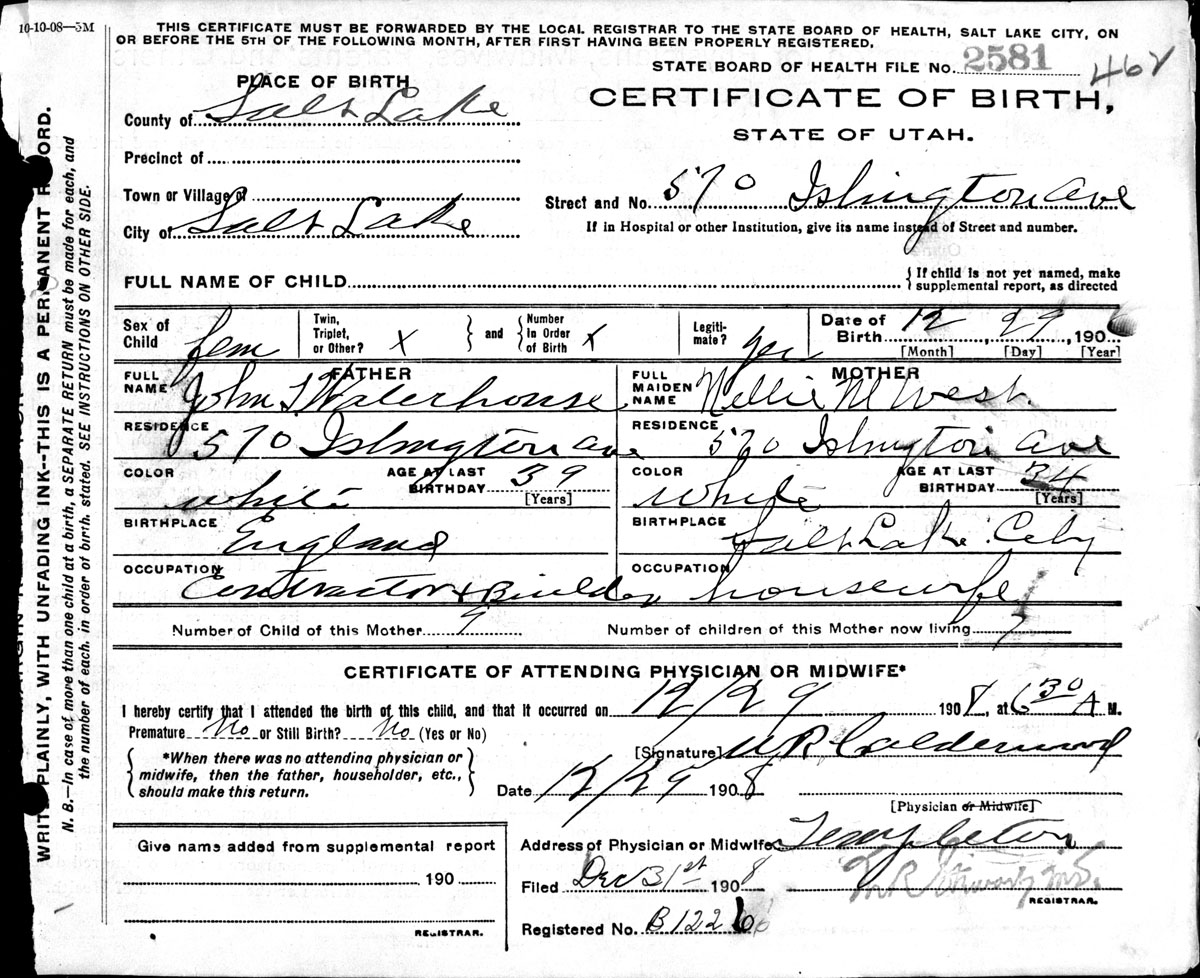 10-10-08—5M
THIS CERTIFICATE MUST BE FORWARDED BY THE LOCAL REGISTRAR TO THE STATE BOARD OF HEALTH, SALT LAKE CITY, ON
OR BEFORE THE 5TH OF THE FOLLOWING MONTH, AFTER FIRST HAVING BEEN PROPERLY REGISTERED.
STATE BOARD OF HEALTH FILE No. 2581
462
PLACE OF BIRTH
CERTIFICATE OF BIRTH,
STATE OF UTAH.
County of Salt Lake
Precinct of
Town or Village of
City of Salt Lake
Street and No. 570 Islington Ave
If in Hospital or other Institution, give its name instead of Street and number.
FULL NAME OF CHILD
{If child is not yet named, make supplemental report, as directed
Sex of Child fem
Twin, Triplet, or Other? X } and { Number In Order of Birth X
Legitimate? yes
Date of Birth 12, 29, 190
[Month] [Day] [Year]
FATHER
FULL NAME John S Waterhouse
RESIDENCE 570 Islington Ave
COLOR white AGE AT LAST BIRTHDAY 39 [Years]
BIRTHPLACE England
OCCUPATION Contractor & Builder
MOTHER
FULL MAIDEN NAME Nellie M West
RESIDENCE 570 Islington Ave
COLOR White AGE AT LAST BIRTHDAY 34 [Years]
BIRTHPLACE Salt Lake City
OCCUPATION housewife
Number of Child of this Mother 9 Number of children of this Mother now living 7
CERTIFICATE OF ATTENDING PHYSICIAN OR MIDWIFE*
I hereby certify that I attended the birth of this child, and that it occurred on 12/29 1908, at 6 30 A M.
Premature No or Still Birth? No (Yes or No)
{*When there was no attending physician or midwife, then the father, householder, etc., should make this return.}
[Signature] W R Calderwood
Date 12/29 1908
[Physician or Midwife]
Address of Physician or Midwife Templeton
Filed Dec 31st 1908
REGISTRAR.
Registered No. B1226
Give name added from supplemental report
190
REGISTRAR.
WRITE PLAINLY, WITH UNFADING INK--THIS IS A PERMANENT RECORD.
N. B.—In case of more than one child at a birth, a SEPARATE RETURN must be made for each, and
the number of each, in order of birth, stated. SEE INSTRUCTIONS ON OTHER SIDE.